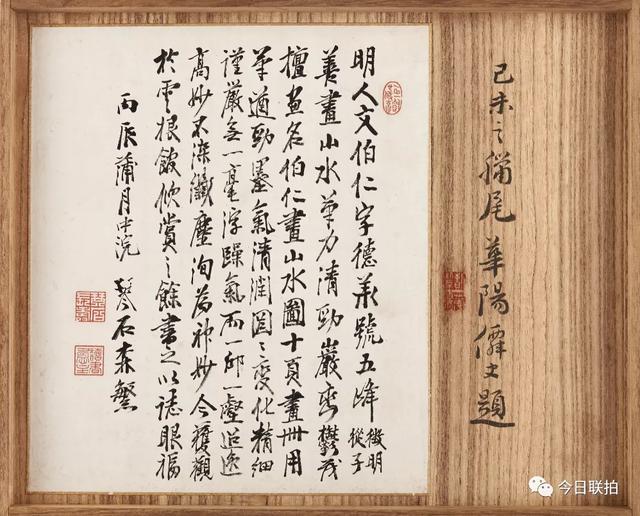 己未之臘尾華陽僊史題
明人文伯仁字德承號五峰徵明從子
善畫山水筆力清勁巖巒鬱茂
擅畫名伯仁畫山水圖十頁畫冊用
筆遒勁墨氣清潤圖〻變化精細
謹嚴無一毫浮躁氣而一邱一壑逸
高妙不染纖塵洵為神妙今獲觀
於雲根館欣賞之餘書之以誌眼福
丙辰蒲月中浣 琴石森繁
今日联拍